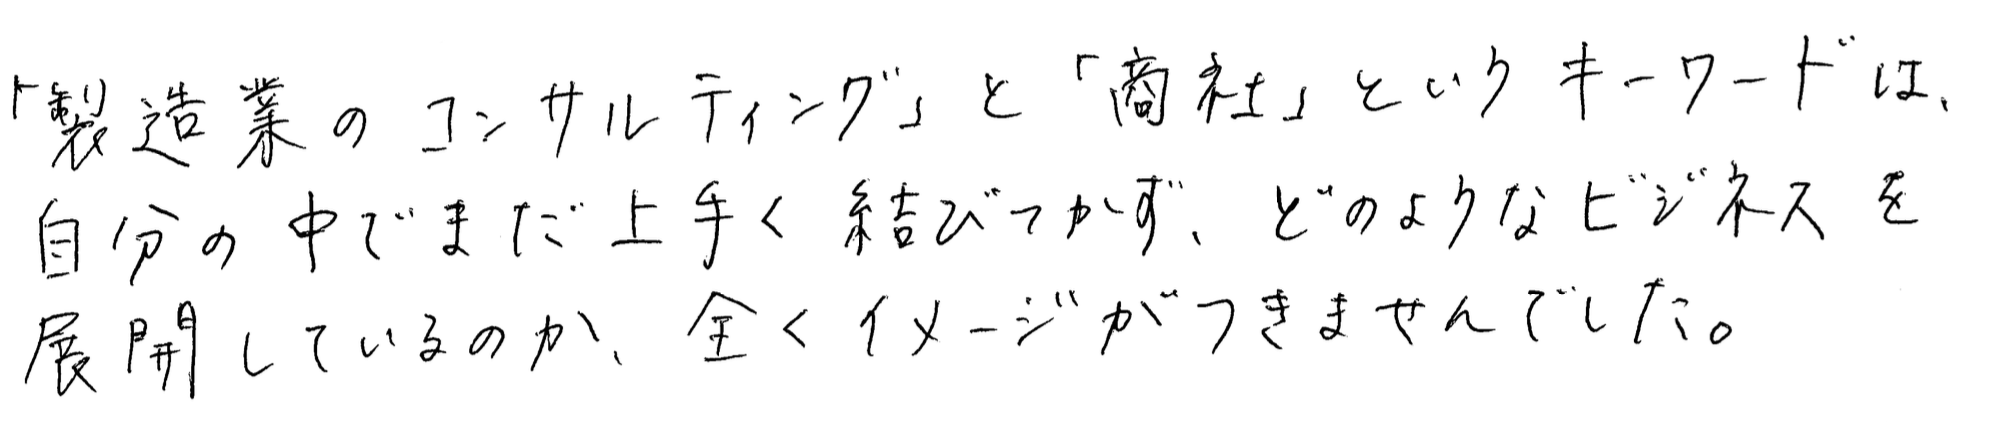 「製造業のコンサルティング」と「商社」というキーワードは、
自分の中でまだ上手く結びつかず、どのようなビジネスを
展開しているのか、全くイメージがつきませんでした。